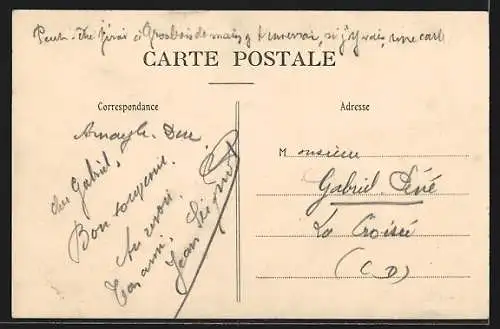 Peut-être j'irai à Grosbois demain, je t'enverrai, si j'y vais, une carte
CARTE POSTALE
Correspondance
Adresse
Arnay-le-Duc
Cher Gabriel,
Bon voyage.
Au revoir
Ton ami,
Jean
Monsieur
Gabriel Péné
La Croisée
(C D)